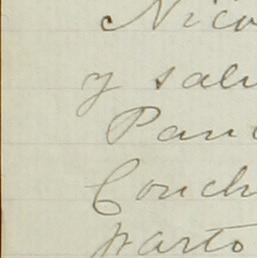 Nico
y salu
Pan
Conch
parto